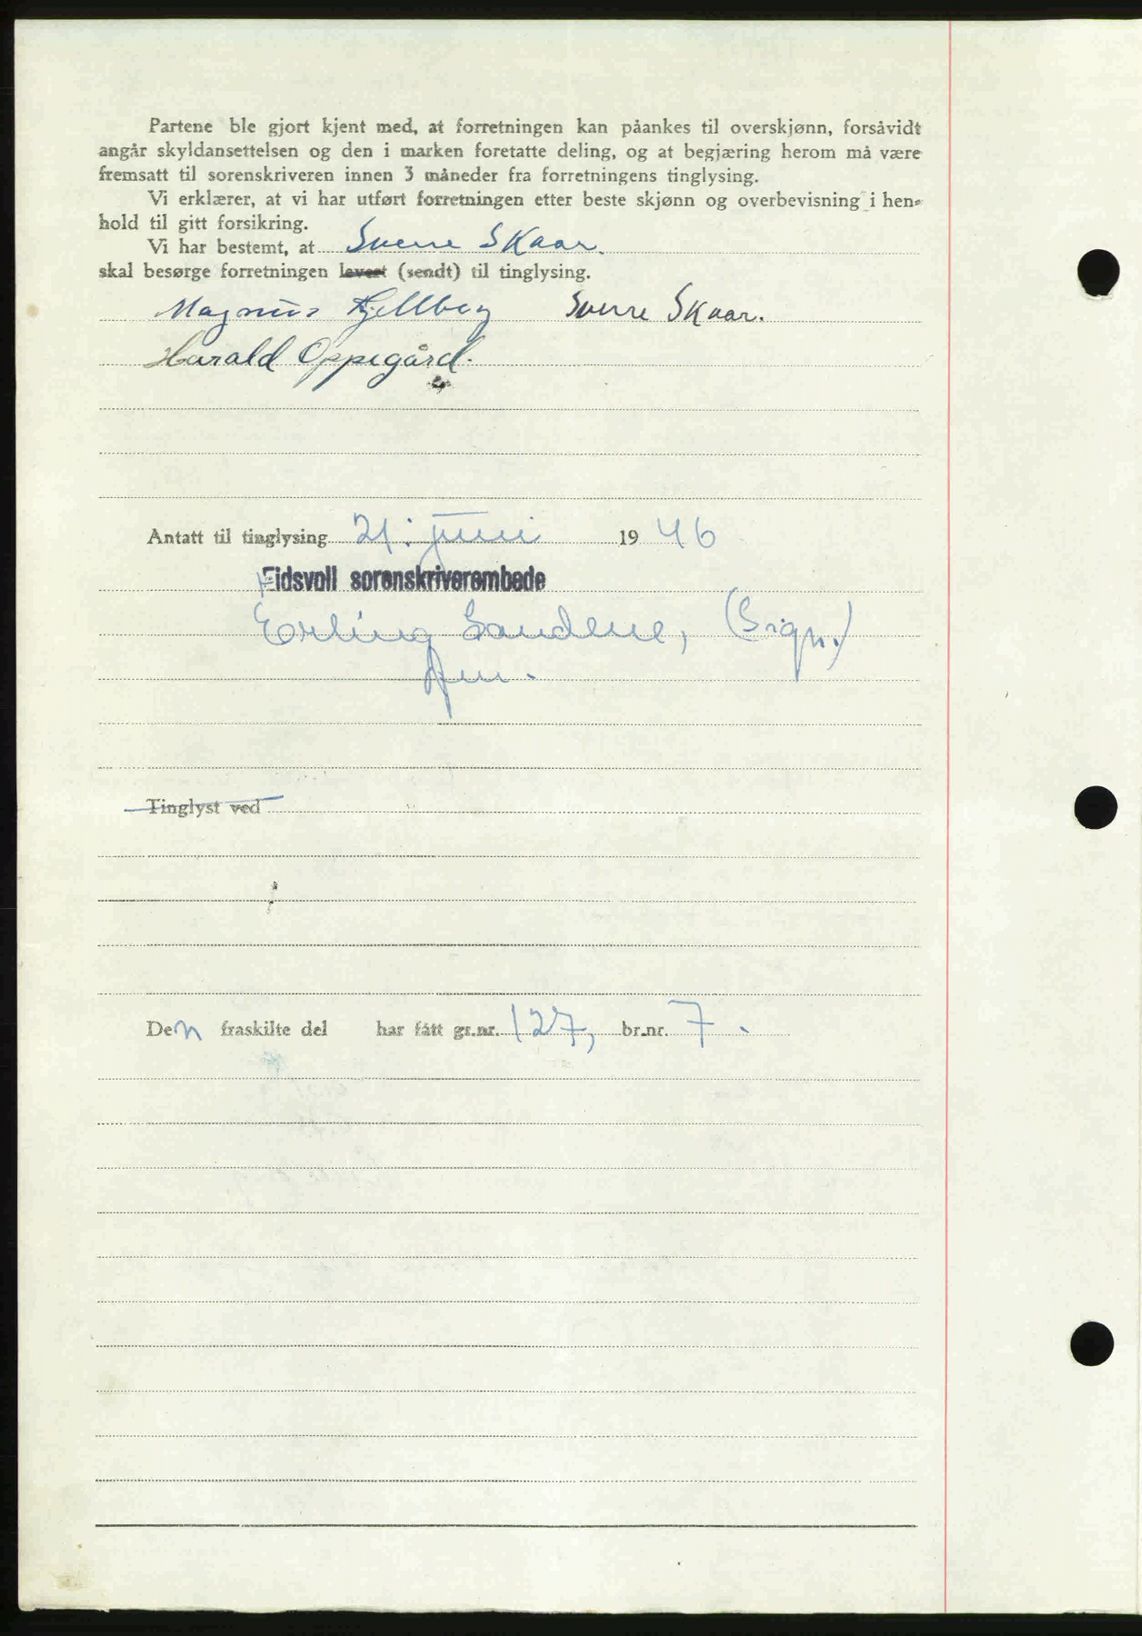 Partene ble gjort kjent med, at forretningen kan påankes til overskjønn, forsåvidt
angår skyldansettelsen og den i marken foretatte deling, og at begjæring herom må være
fremsatt til sorenskriveren innen 3 måneder fra forretningens tinglysing.
Vi erklærer, at vi har utført forretningen etter beste skjønn og overbevisning i hen-
hold til gitt forsikring.
Vi har bestemt, at Sverre Skaar.
skal besørge forretningen levert (sendt) til tinglysing.
Magnus Kjellberg Sverre Skaar.
Harald Oppegård.
Antatt til tinglysing 21. juni 1946
Eidsvoll sorenskriverembede
Erling Sandene, (Sign.)
fm.
Tinglyst ved
Den fraskilte del har fått gr.nr. 127, br.nr. 7.